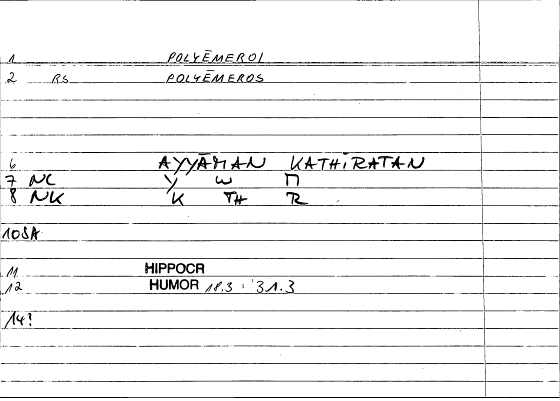 1 POLYĒMEROI
2 RS POLYĒMEROS
6 AYYĀMAN KATHIRATAN
7 NC Y W
8 NK K TH R
10SA
11 HIPPOCR
12 HUMOR 18.3 : 31.3
14?